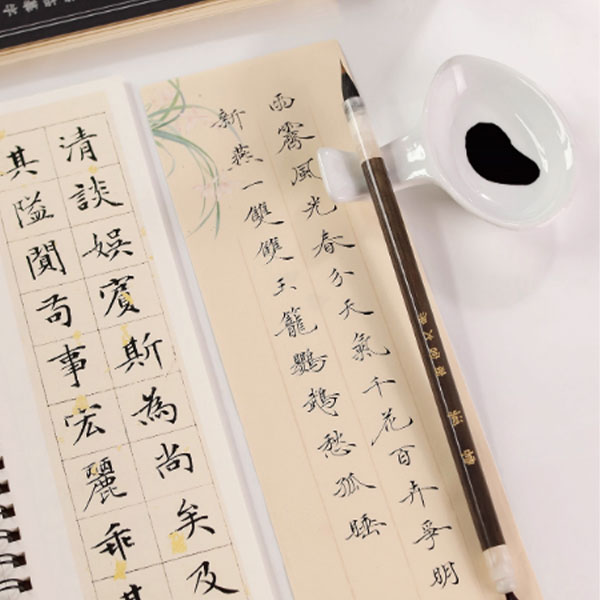 雨霽風光春分天氣千花百卉爭明
新燕一雙雙玉籠鸚鵡愁孤睡
清談娛賓斯為尚矣及
其隘苟事宏麗乖其